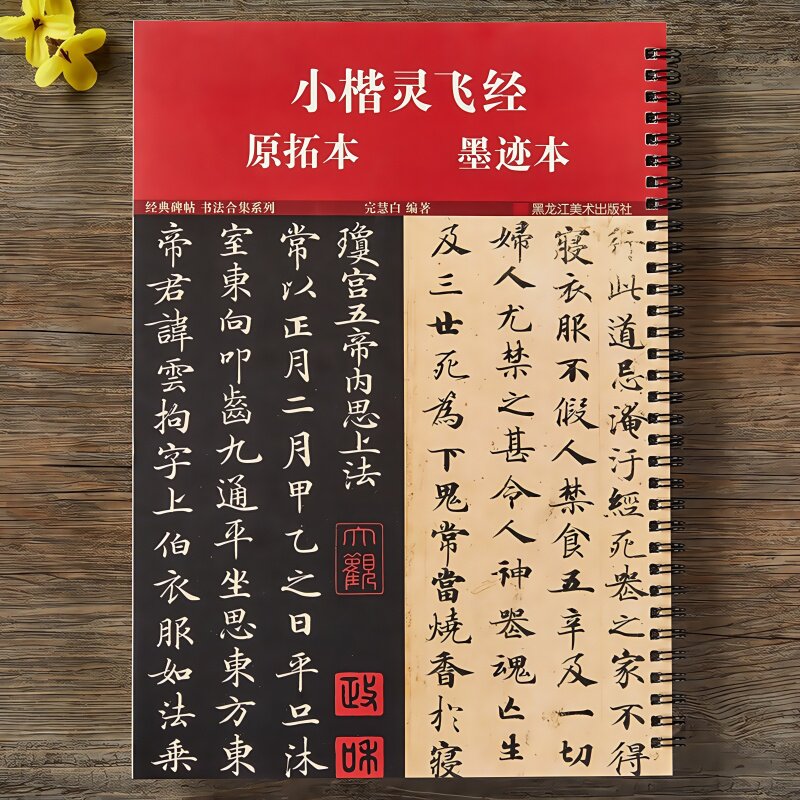 小楷灵飞经
原拓本
墨迹本
经典碑帖 书法合集系列
完慧白 编著
黑龙江美术出版社
瓊宫五帝内思上法
大觀
政
和
常以正月二月甲乙之日平旦沐
室東向叩齒九通平坐思東方東
帝君諱雲拘字上伯衣服如法乘
行此道忌淹汙經死喪之家不得
寢衣服不假人禁食五辛及一切
婦人尤禁之甚令人神喪魂亡生
及三世死為下鬼常當燒香於寢